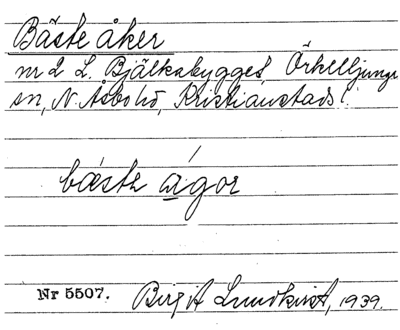 Bäste åker
nr 2 L. Bjälkabygget, Örkelljunga
sn, N. Åsbo hd, Kristianstads l.
bæste ágor
Nr 5507. Birgit Lundkvist, 1939.